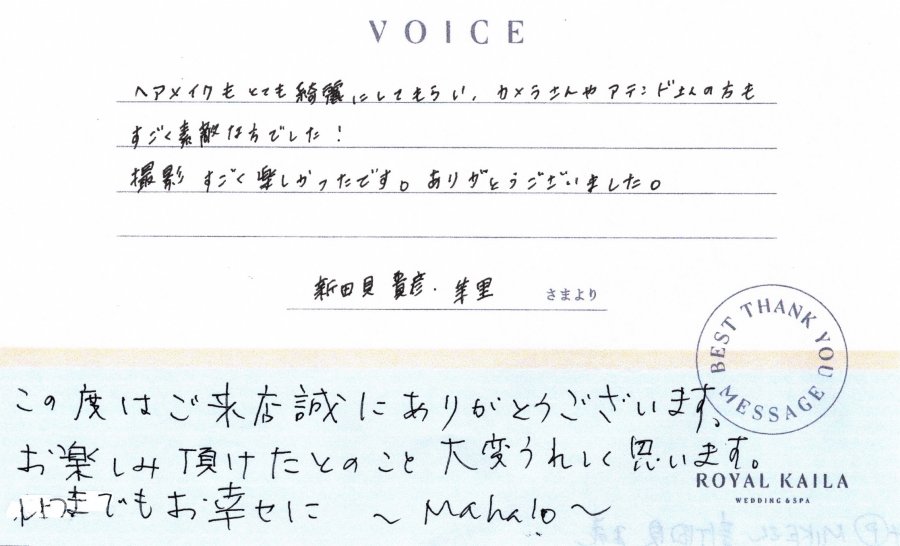 VOICE
ヘアメイクもとても綺麗にしてもらい、カメラさんやアテンドさんの方も
すごく素敵な方でした!
撮影すごく楽しかったです。ありがとうございました。
新田見 貴彦・ 里 さまより
BEST THANK YOU MESSAGE
この度はご来店誠にありがとうございます。
お楽しみ頂けたとのこと大変うれしく思います。
ROYAL KAILA
WEDDING & SPA
いつまでもお幸せに 〜Mahalo〜